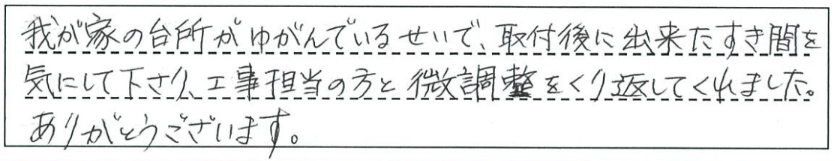 我が家の台所がゆがんでいるせいで、取付後に出来たすき間を
気にして下さり、工事担当の方と微調整をくり返してくれました。
ありがとうございます。